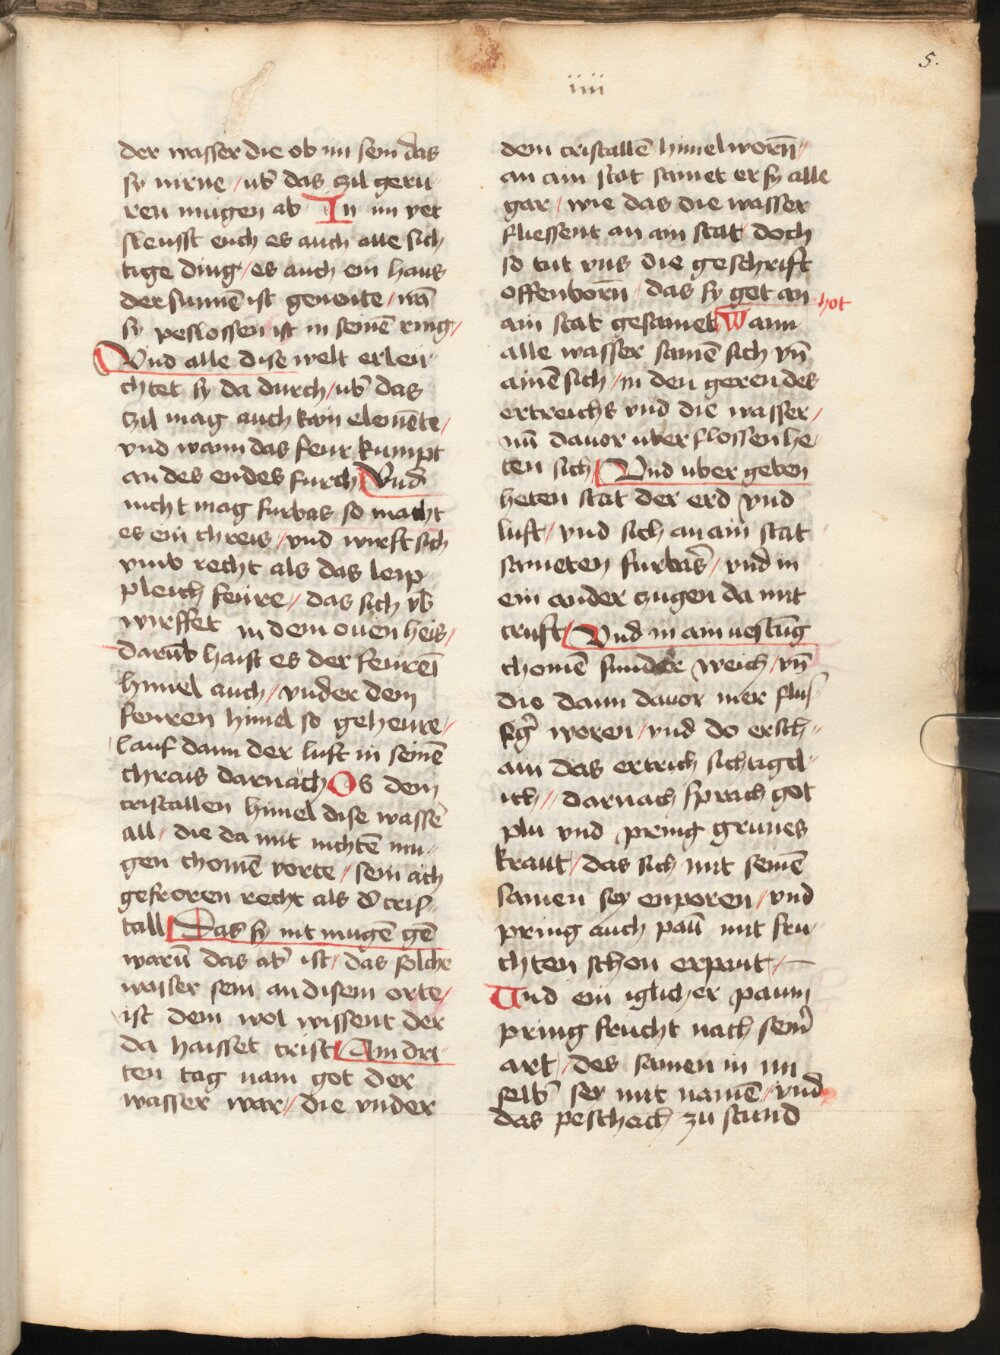 5.
iiii
der wasser die ob im sein das
sy nirne / ub̃ das zil geru
ren mugen ab In im ver
sleusst euch es auch alle sich
tige ding / es auch ein haus
der sunnē ist genente / wā
sy peslossen ist in seinē ring /
Und alle dise welt erleu
chtet sy da durch / ub̃ das
zil mag auch kain elemēte /
vnd wann das feur kumpt
an des endes furch Und
nicht mag furbas so macht
es ein chreis / vnd wirft sich
vmb recht als das leip
pleich feure / das sich vb̃
wirffet in dem ouen heis /
darūb haist es der feureī
himel auch / vnder dem
feuren himel so geheure /
lauf dann der luft in seinē
chrais darnach Os dem
cristallen himel dise wasser̃
all / die da mit nichtē mu
gen chomē vorte / sein ach
gefroren recht als d̓ cris
tall Das sy nit mugē gē
warū das ab̃ ist / das solche
wasser sein an disem orte /
ist dem wol wissent der
da haisset crist Am dri
ten tag nam got der
wasser war / die vnder
dem cristallē himel worñ /
an ain stat samet er sy alle
gar / wie das die wasser
fliessent an ain stat doch
so tut vns die geschrift
offenborñ / das sy get an hot
ain stat gesamet Wann
alle wasser samē sich vñ
ainē sich / in den geren des
ertreichs vnd die wasser /
nū dauor uber flossen he
ten sich Und uber geben
heten stat der erd vnd
luft / vnd sich an ain stat
sameten furbas̃ / vnd in
ein ander zugen da mit
cruft / Und in ain vestūg
chomē sunder weich / vñ
die dann dauor mer flus
kg̃ woren / vnd do ersch
ain das ertrich sichtigel
ich // darnach sprach got
plu vnd pring grunes
kraut / das sich mit seinē
samen sey enporen / vnd
pring auch paū mit fru
chten schon erpaut /
Und ein iglicher paum
pring frucht nach sein̄
art / des samen in im
selb̃ sey mit namē / vnd
das peschach zu stund